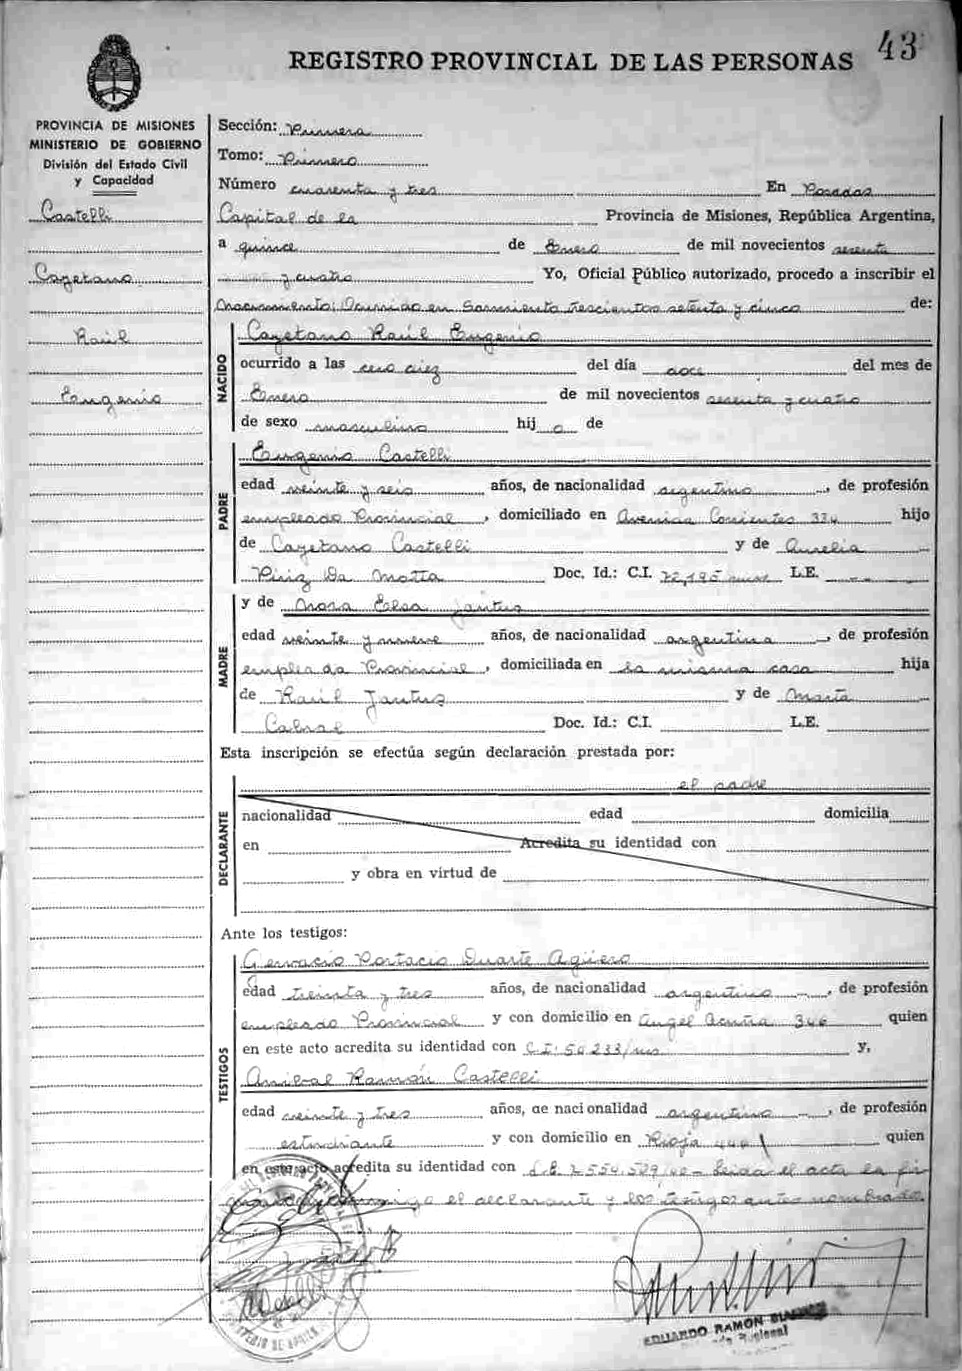 43
REGISTRO PROVINCIAL DE LAS PERSONAS
PROVINCIA DE MISIONES
MINISTERIO DE GOBIERNO
División del Estado Civil
y Capacidad
Castelli
Cayetano
Raúl
Eugenio
Sección: Primera
Tomo: Primero
Número cuarenta y tres En Posadas
Capital de la Provincia de Misiones, República Argentina,
a quince de Enero de mil novecientos sesenta
y cuatro Yo, Oficial Público autorizado, procedo a inscribir el
nacimiento: Ocurrido en Sarmiento trescientos setenta y cinco de:
NACIDO
Cayetano Raúl Eugenio
ocurrido a las cero diez del día doce del mes de
Enero de mil novecientos sesenta y cuatro
de sexo masculino hijo de
PADRE
Eugenio Castelli
edad veinte y seis años, de nacionalidad argentino, de profesión
empleado Provincial, domiciliado en Avenida Corrientes 334 hijo
de Cayetano Castelli y de Aurelia
Piriz Da Motta Doc. Id.: C.I. 72,195 L.E.
MADRE
y de Nora Elsa Jantus
edad veinte y nueve años, de nacionalidad argentina, de profesión
empleada Provincial, domiciliada en la misma casa hija
de Raúl Jantus y de María
Cabral Doc. Id.: C.I. L.E.
Esta inscripción se efectúa según declaración prestada por:
DECLARANTE
el padre
nacionalidad edad domicilia
en Acredita su identidad con
y obra en virtud de
Ante los testigos:
TESTIGOS
Gervacio Portacio Duarte Agüero
edad treinta y tres años, de nacionalidad argentino, de profesión
empleado Provincial y con domicilio en Angel Acuña 346 quien
en este acto acredita su identidad con C.I. 50233/ms y,
Anibal Ramón Castelli
edad veinte y tres años, de nacionalidad argentino, de profesión
estudiante y con domicilio en Rioja quien
en este acto acredita su identidad con Leida el acta la fir
el declarante y los testigos antes nombrados.
EDUARDO RAMON